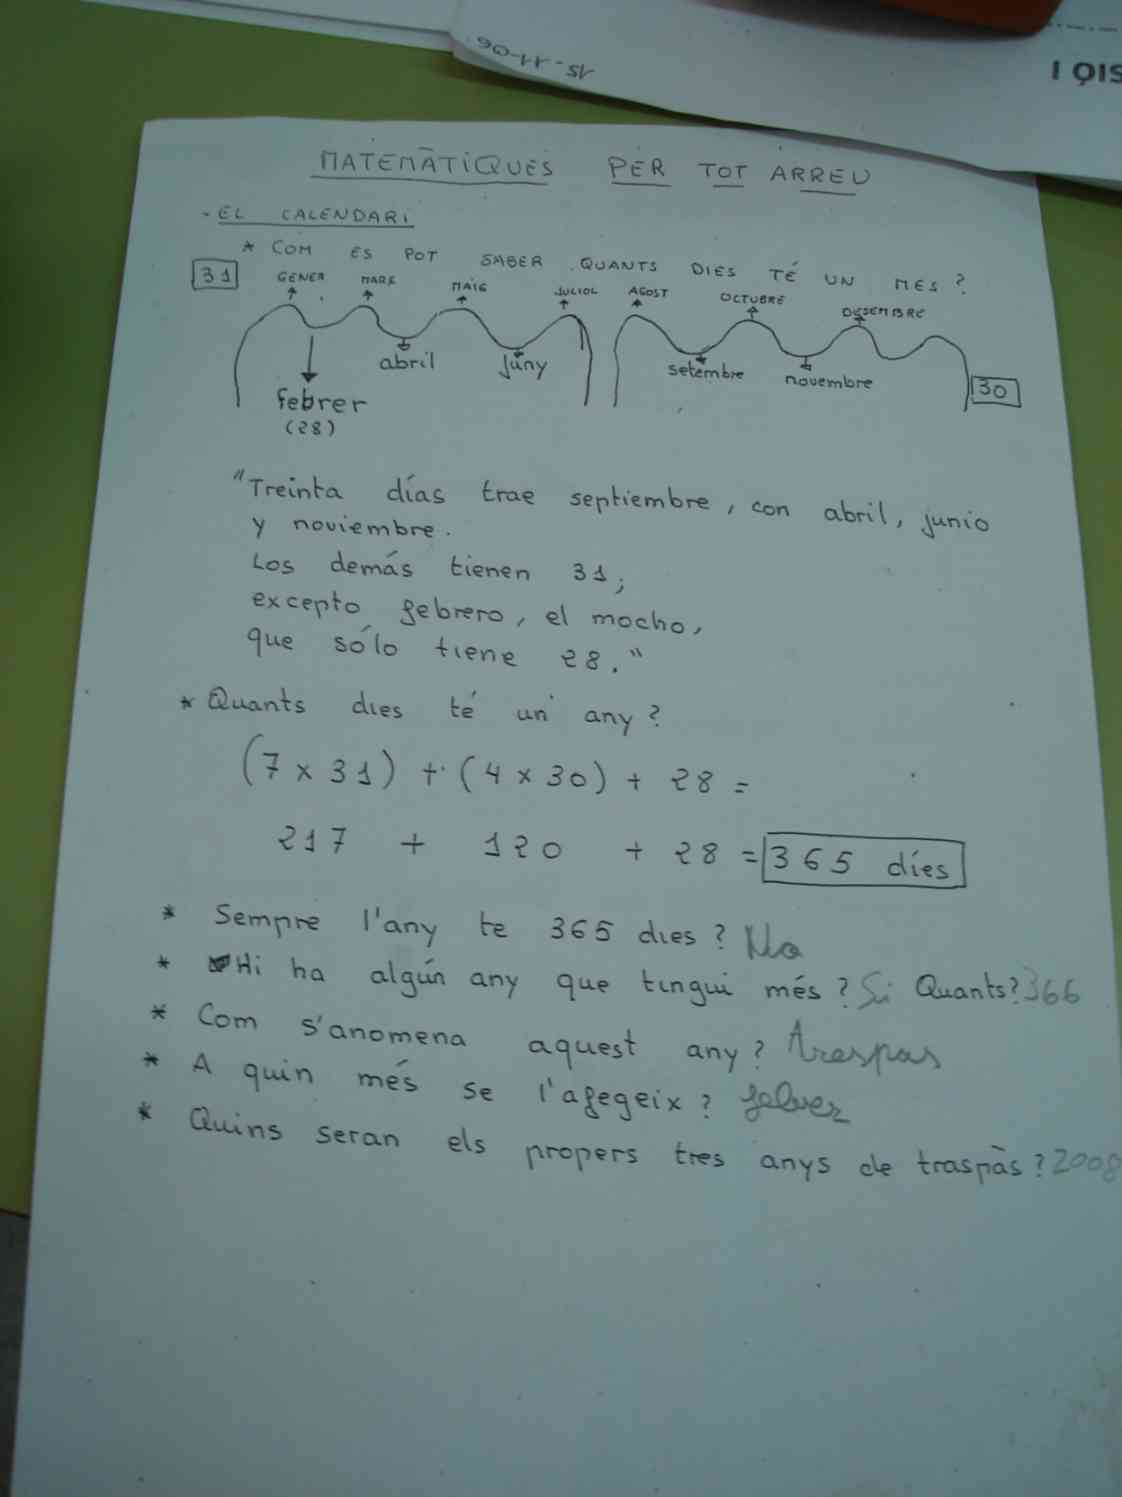 15-11-06
SIÓ I
MATEMÀTIQUES PER TOT ARREU
- EL CALENDARI
* COM ES POT SABER QUANTS DIES TÉ UN MES?
31 GENER MARÇ MAIG JULIOL AGOST OCTUBRE DESEMBRE
abril juny setembre novembre 30
febrer
(28)
"Treinta días trae septiembre, con abril, junio
y noviembre.
Los demás tienen 31;
excepto febrero, el mocho,
que sólo tiene 28."
* Quants dies té un any?
(7 x 31) + (4 x 30) + 28 =
217 + 120 + 28 = 365 díes
* Sempre l'any te 365 dies? No
* Hi ha algún any que tingui més? Si Quants? 366
* Com s'anomena aquest any? trespas
* A quin més se l'afegeix? febrer
* Quins seran els propers tres anys de traspàs? 2008